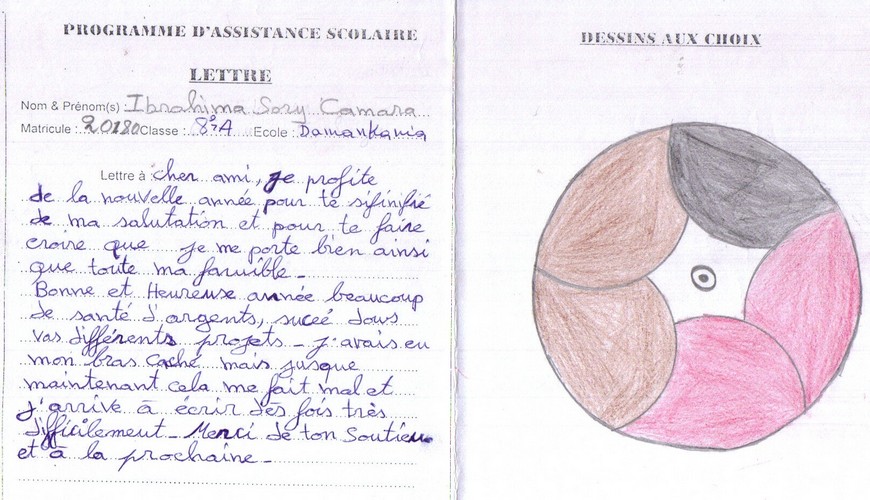 PROGRAMME D'ASSISTANCE SCOLAIRE
LETTRE
Nom & Prénom(s) : Ibrahima Sory Camara
Matricule : 20180 Classe : 8è A Ecole : Damankania
Lettre à : cher ami, je profite
de la nouvelle année pour te sifinifié
de ma salutation et pour te faire
croire que je me porte bien ainsi
que toute ma famible.
Bonne et Heureuse année beaucoup
de santé d'argents, suceé dous
vas différents projets - j'avais eu
mon bras caché mais jusque
maintenant cela me fait mal et
j'arrive à écrire dès fois très
difficilement - Merci de ton soutien
et à la prochaine -
DESSINS AUX CHOIX